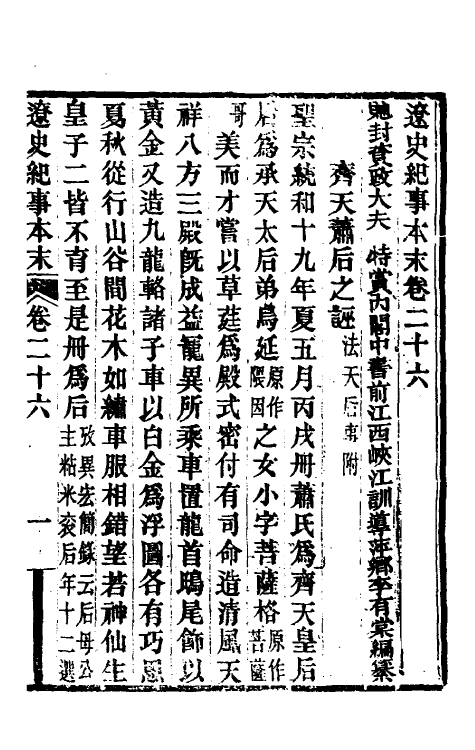 遼史紀事本末卷二十六
貤封資政大夫 特賞內閣中書前江西峽江訓導萍鄉李有棠編纂
齊天蕭后之誣法天后事附
聖宗統和十九年夏五月丙戌冊蕭氏爲齊天皇后
后爲承天太后弟烏延原作隈因之女小字菩薩格原作菩薩
哥美而才嘗以草莛爲殿式密付有司命造清風天
祥八方三殿旣成益寵異所乘車置龍首鴟尾飾以
黃金又造九龍輅諸子車以白金爲浮圖各有巧思
夏秋從行山谷間花木如繡車服相錯望若神仙生
皇子二皆不育至是冊爲后攷異宏簡錄云后母公主粘米袞后年十二選
遼史紀事本末 卷二十六 一